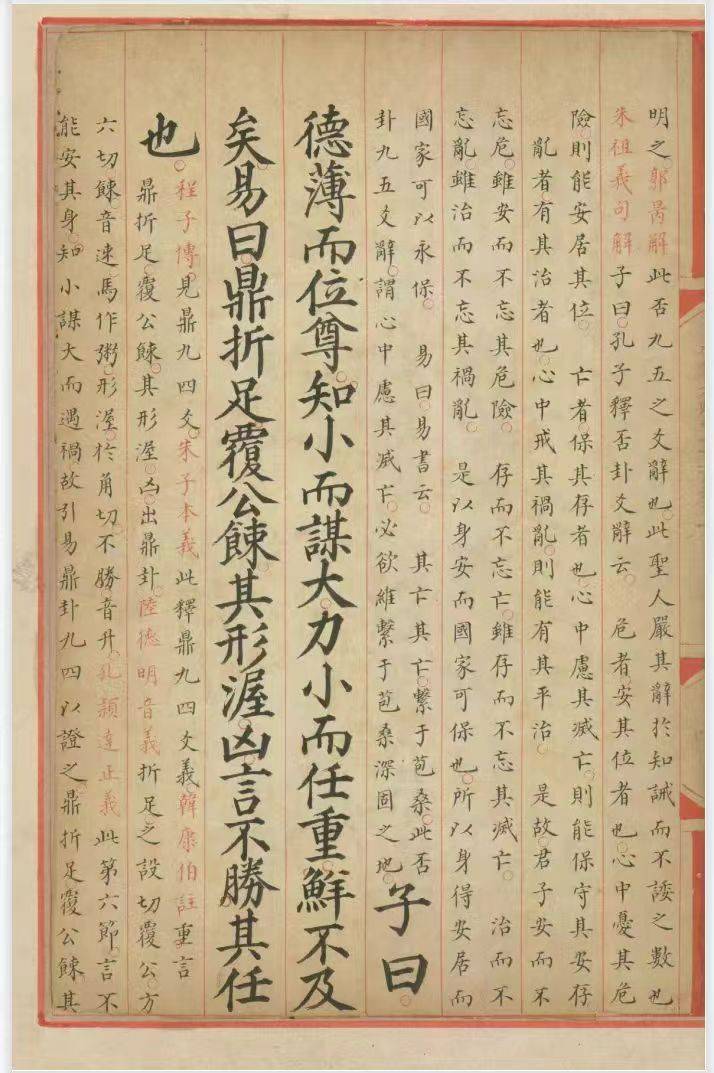 明之郭解此否九五之爻辭也此聖人嚴其辭於知誡而不諉之數也
朱祖義句解子曰孔子釋否卦爻辭云 危者安其位者也心中憂其危
險則能安居其位 亡者保其存者也心中慮其滅亡則能保守其安存
亂者有其治者也心中戒其禍亂則能有其平治 是故君子安而不
忘危雖安而不忘其危險 存而不忘亡雖存而不忘其滅亡 治而不
忘亂雖治而不忘其禍亂 是以身安而國家可保也所以身得安居而
國家可以永保 易曰易書云 其亡其亡繫于苞桑此否
卦九五爻辭謂心中慮其滅亡必欲維繫于苞桑深固之地
子曰
德薄而位尊知小而謀大力小而任重鮮不及
矣易曰鼎折足覆公餗其形渥凶言不勝其任
也
程子傳見鼎九四爻朱子本義此釋鼎九四爻義韓康伯註重言
鼎折足覆公餗其形渥凶出鼎卦陸德明音義折足之設切覆公方
六切餗音速馬作粥形渥於角切不勝音升孔穎達正義此第六節言不
能安其身知小謀大而遇禍故引易鼎卦九四以證之鼎折足覆公餗其